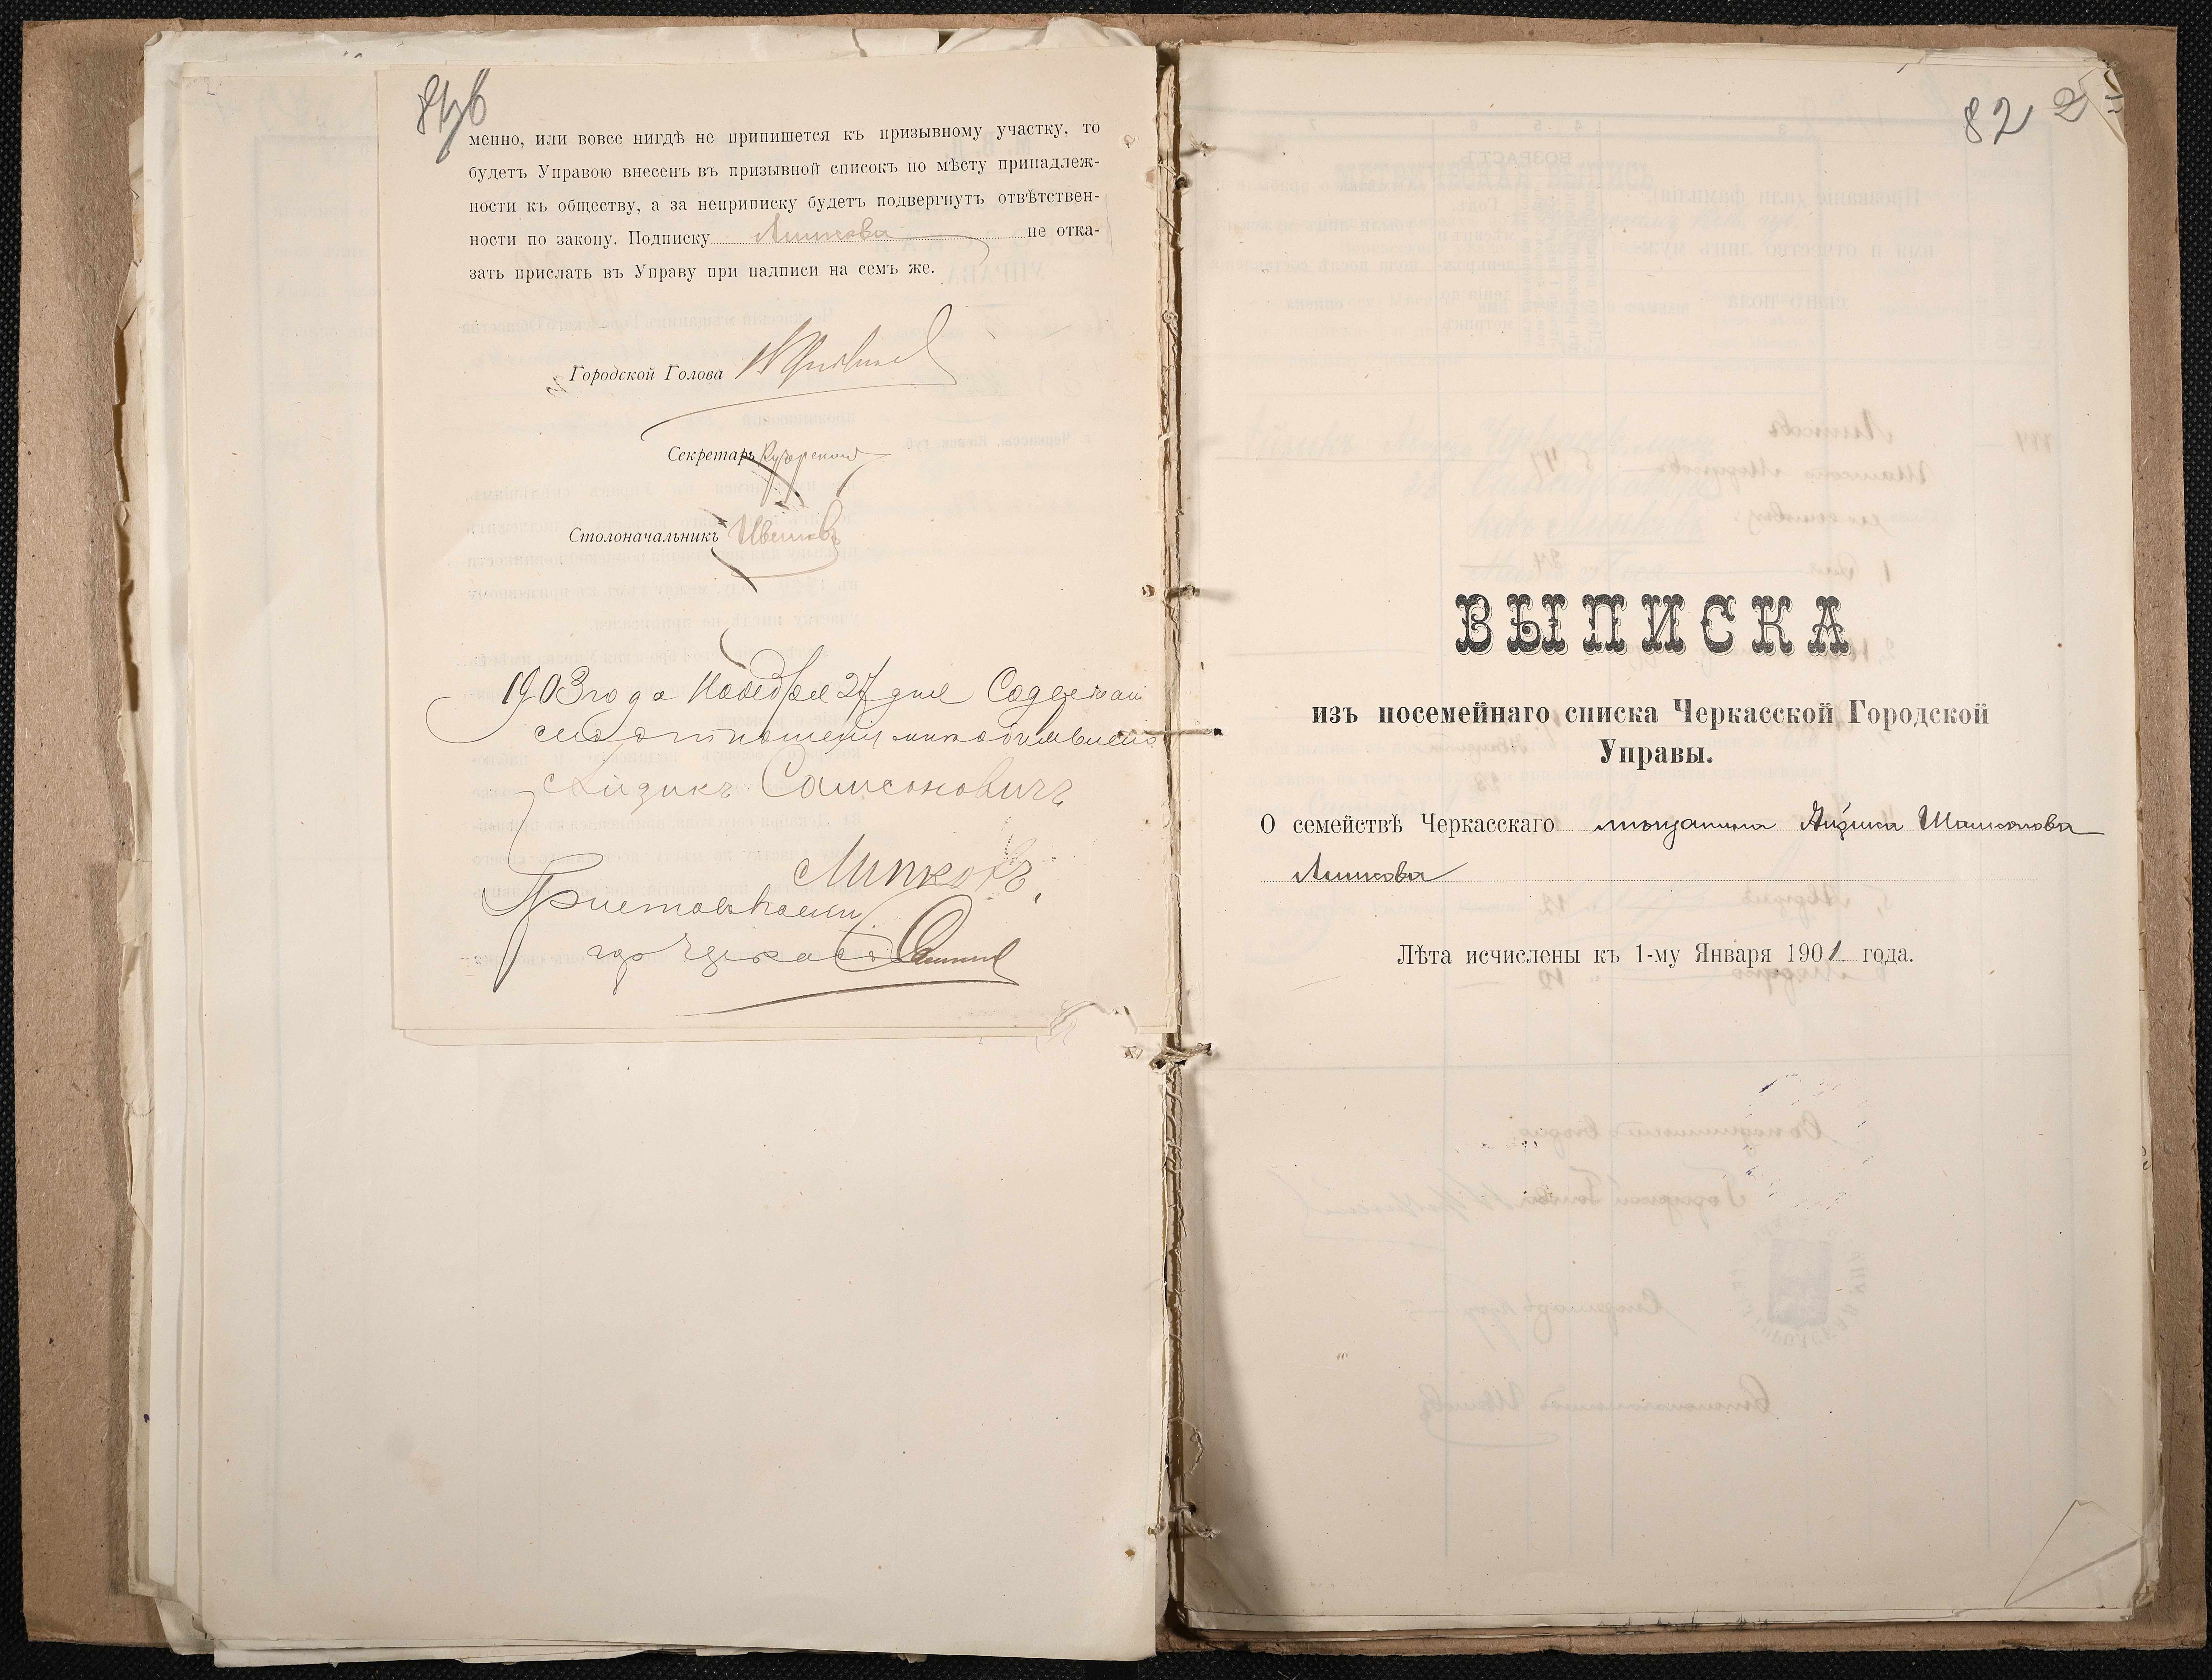 менно, или вовсе нигдѣ не припишется къ призывному участку, то
будетъ Управою внесенъ въ призывной списокъ по мѣсту принадлеж-
ности къ обществу, а за неприписку будетъ подвергнутъ отвѣтствен-
ности по закону. Подписку Липкова не отка-
зать прислать въ Управу при надписи на семъ же.
Городской Голова
Секретарь
Столоначальникъ Ивановъ
1903 года Ноября 27 дня Содержаніе
сего отношенія мнѣ объявлено
Айзикъ Самсоновичъ
Липковъ
Приставъ
гор Черкассъ
82
ВЫПИСКА
изъ посемейнаго списка Черкасской Городской
Управы.
О семействѣ Черкасскаго мѣщанина Айзика Шамсонова
Липкова
Лѣта исчислены къ 1-му Января 1901 года.